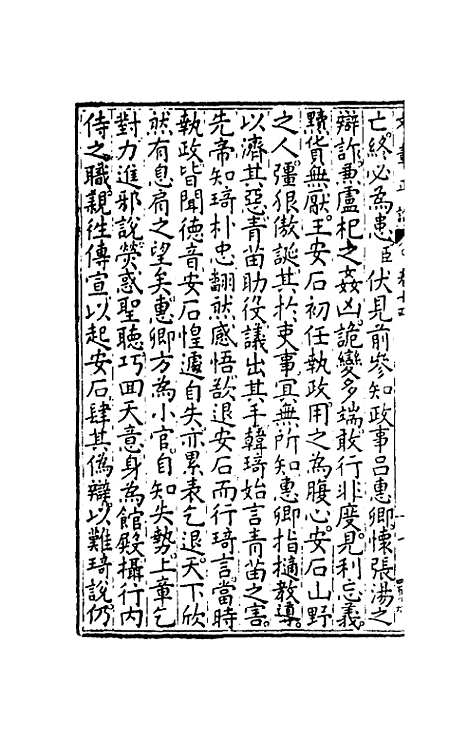 亡終必爲患臣伏見前參知政事呂惠卿懷張湯之
辯詐兼盧杞之姦凶詭變多端敢行非度見利忘義
黷貨無厭王安石初任執政用之為腹心安石山野
之人彊狠傲誕其扵吏事冝無所知惠卿指擿教導
以濟其惡青苗助役議出其手韓琦始言青苗之害
先帝知琦朴忠翻然感悟欲退安石而行琦言當時
執政皆聞德音安石惶遽自失亦累表乞退天下欣
然有息肩之望矣惠卿方為小官自知失勢上章乞
對力進邪說熒惑聖聽巧回天意身為館殿攝行内
侍之職親往傳宣以起安石肆其偽辯以難琦說仍